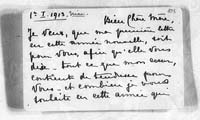 1er I. 1913.
Bien Chère Mère,
Je veux, que ma première lettre
en cette année nouvelle, soit
pour vous, afin qu'elle vous
dise tout ce que mon cœur,
contient de tendresse pour
vous et combien je vous
souhaite en cette année que